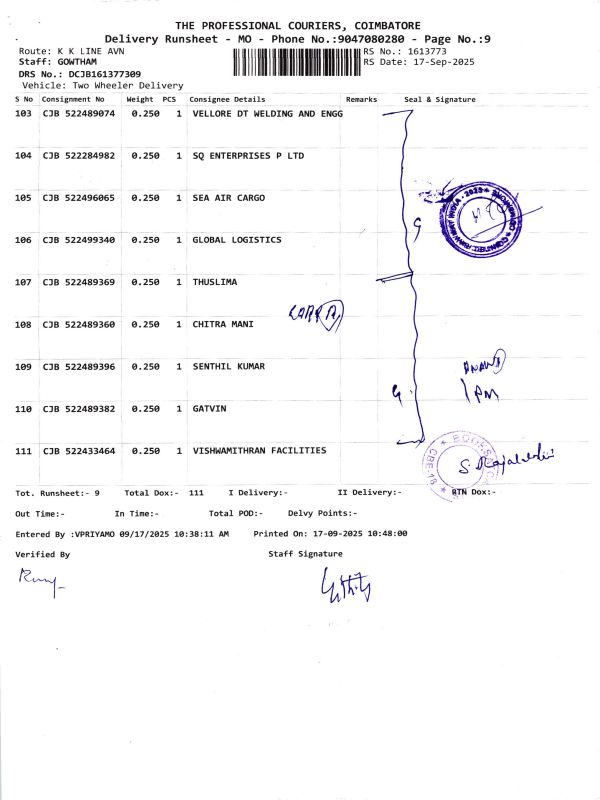 THE PROFESSIONAL COURIERS, COIMBATORE
Delivery Runsheet - MO - Phone No.:9047080280 - Page No.:9
Route: K K LINE AVN RS No.: 1613773
Staff: GOWTHAM RS Date: 17-Sep-2025
DRS No.: DCJB161377309
Vehicle: Two Wheeler Delivery
S No Consignment No Weight PCS Consignee Details Remarks Seal & Signature
103 CJB 522489074 0.250 1 VELLORE DT WELDING AND ENGG
104 CJB 522284982 0.250 1 SQ ENTERPRISES P LTD
105 CJB 522496065 0.250 1 SEA AIR CARGO
106 CJB 522499340 0.250 1 GLOBAL LOGISTICS
107 CJB 522489369 0.250 1 THUSLIMA
108 CJB 522489360 0.250 1 CHITRA MANI
109 CJB 522489396 0.250 1 SENTHIL KUMAR
ANAND
1 PM
110 CJB 522489382 0.250 1 GATVIN
111 CJB 522433464 0.250 1 VISHWAMITHRAN FACILITIES
Tot. Runsheet:- 9 Total Dox:- 111 I Delivery:- II Delivery:- RTN Dox:-
Out Time:- In Time:- Total POD:- Delvy Points:-
Entered By :VPRIYAMO 09/17/2025 10:38:11 AM Printed On: 17-09-2025 10:48:00
Verified By Staff Signature